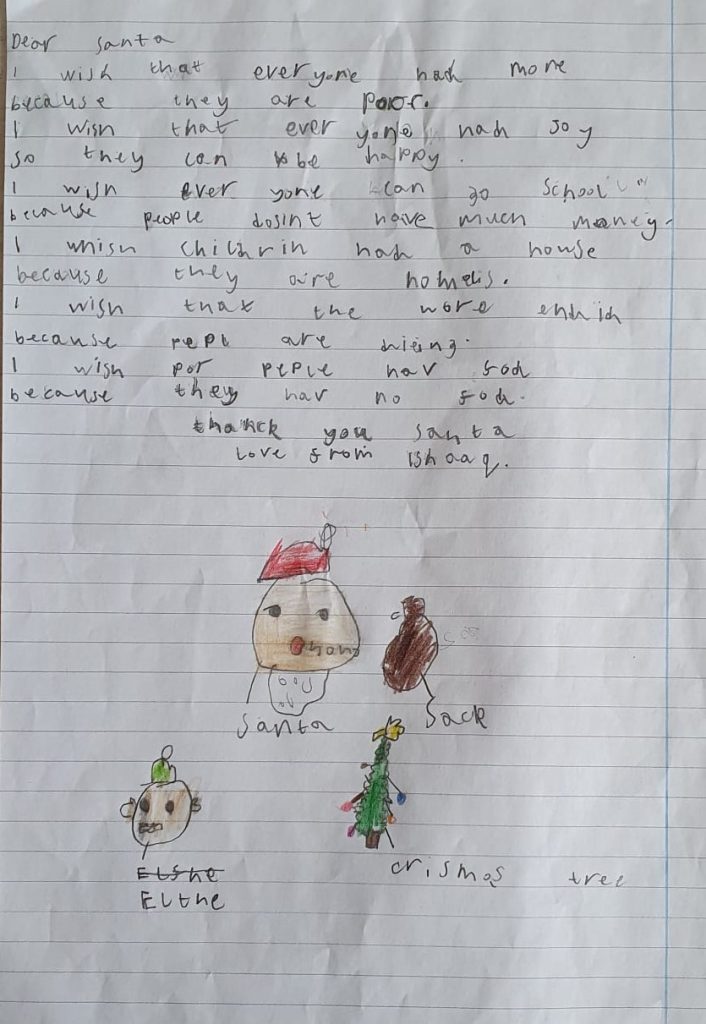 Dear santa
I wish that everyone hah more
because they are poor.
I wish that everyone hah joy
so they can be happy.
I wish everyone can go school
because people dosint have much money.
I whish chilhrin hah a house
because they are homelis.
I wish that the wore enhih
because pepl are hieing.
I wish por peple hav foh
because they hav no foh.
thanck you santa
love from ishaaq.
hoho
santa
sack
Elshe
Elthe
crismas tree